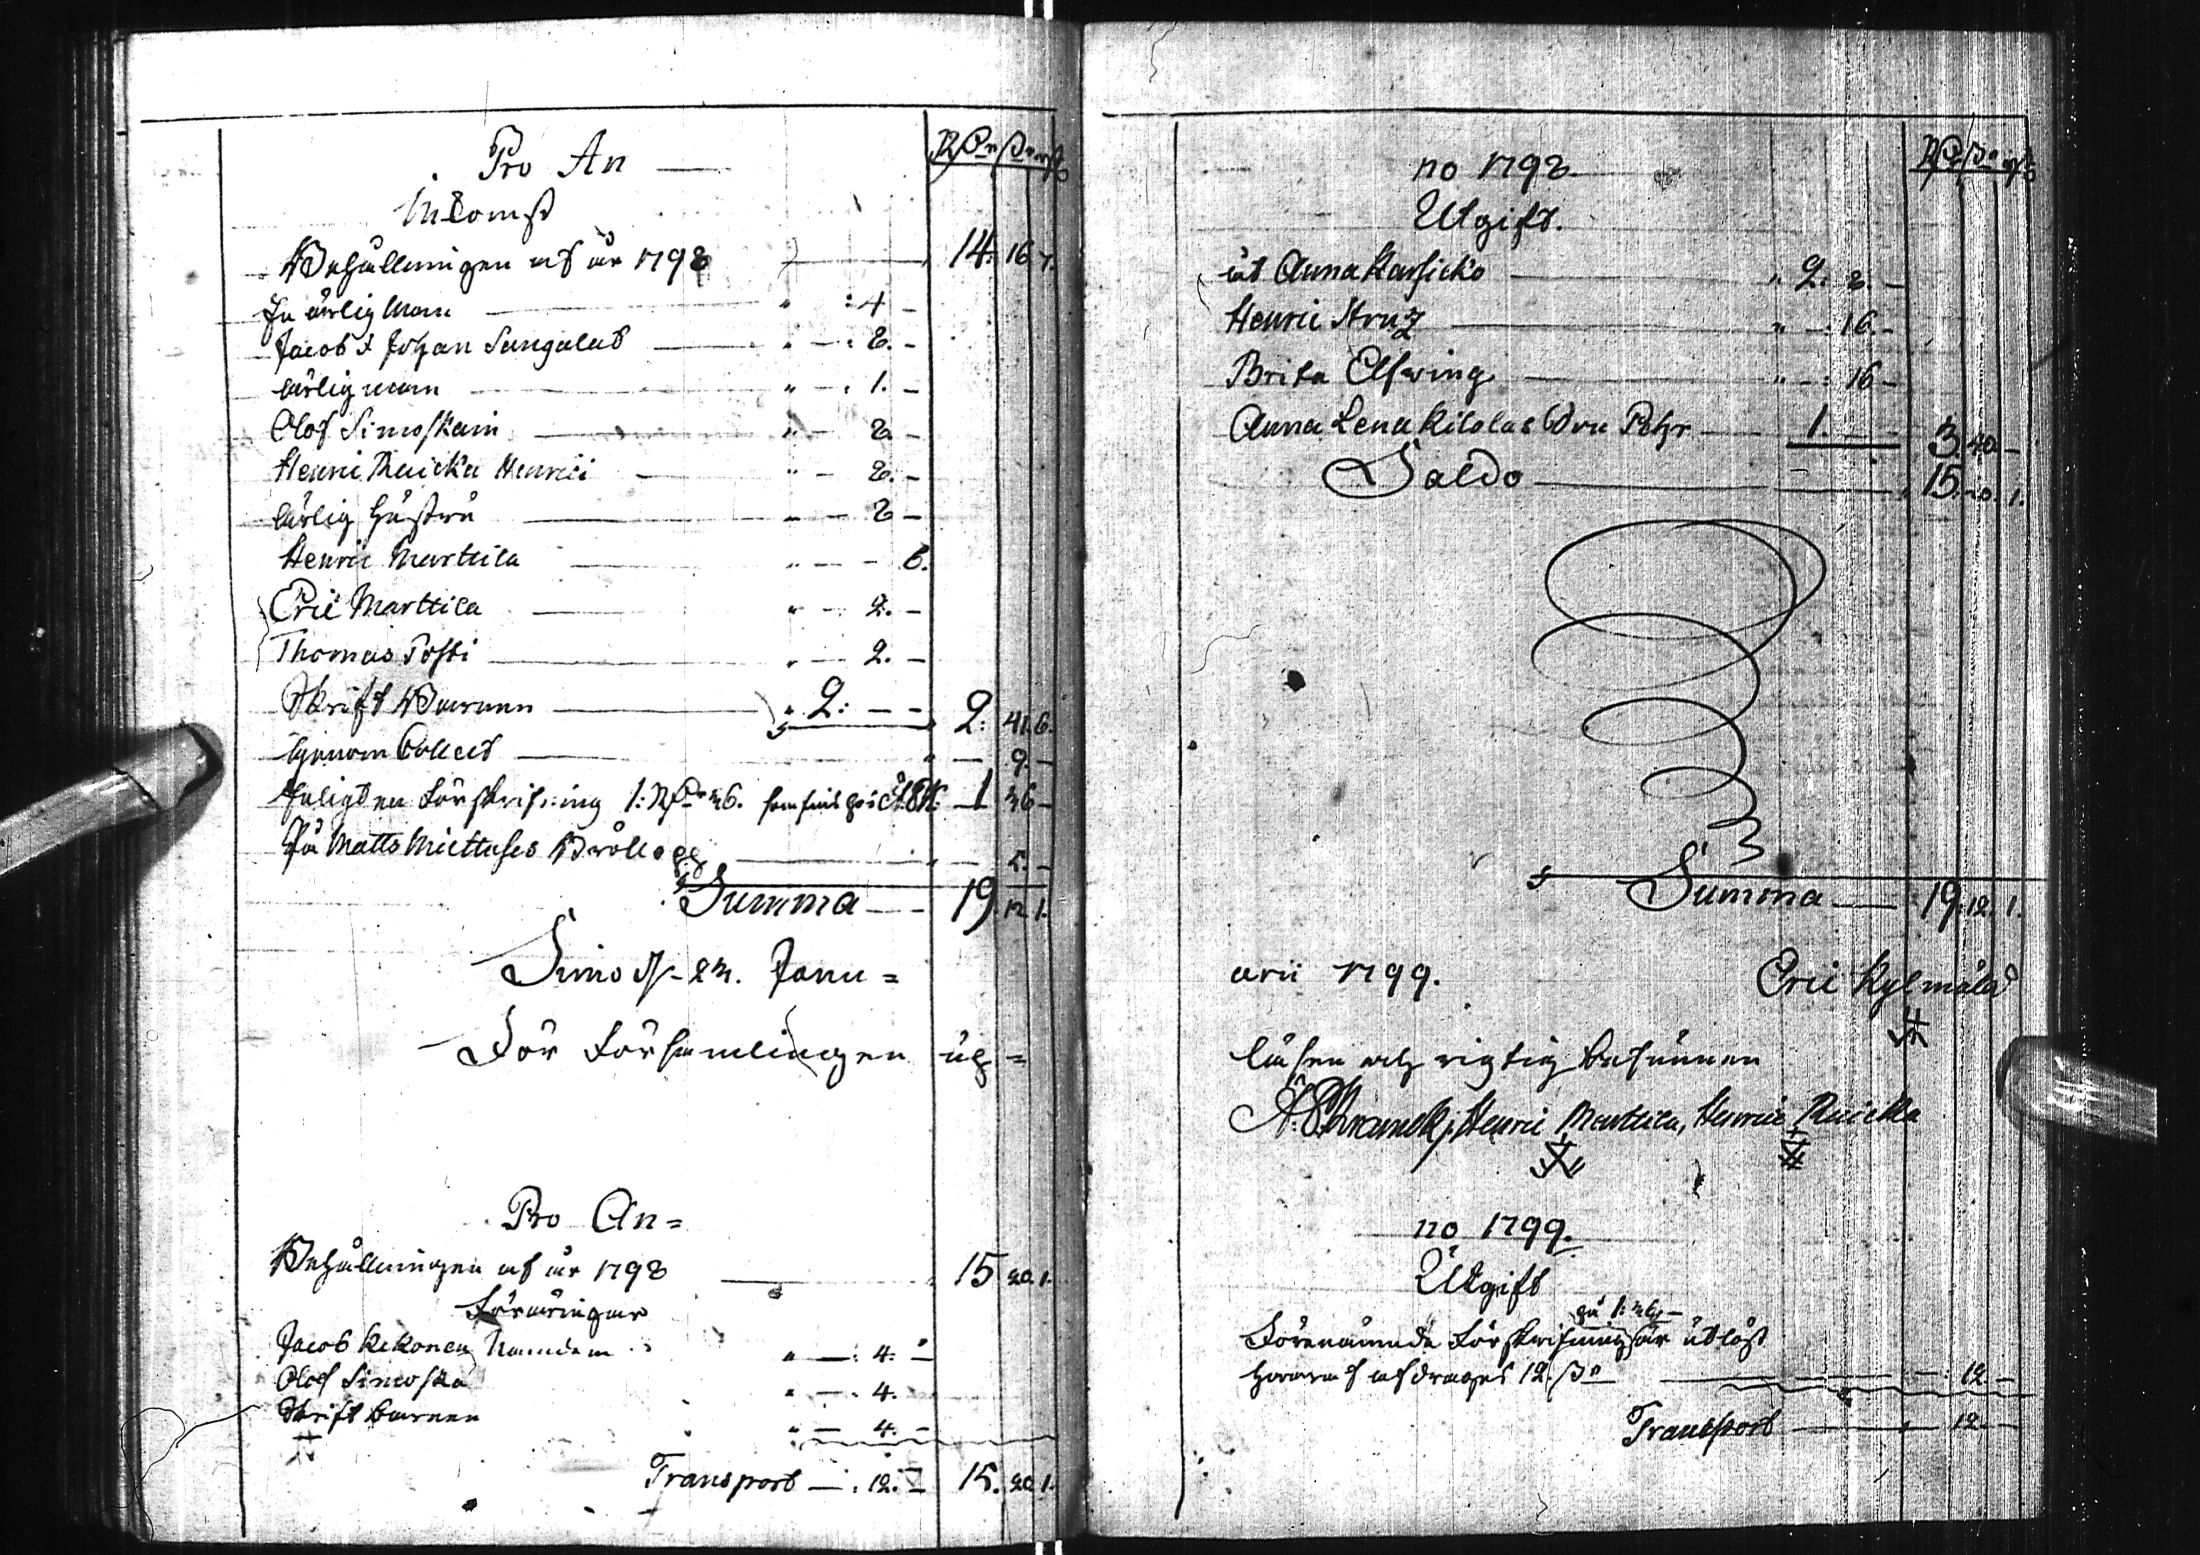 Pro An
Rd s rst
Inkomst
Behållningen af år 1798 14. 16 7.
En ärlig Man " : 4 -
Jacob & Johan Sangalad " - : 8. -
ärlig man " - : 1. -
Olof Simoskain " - 2 -
Henric Ruicka Henrici " - 2. -
ärlig Hustru " - 2 -
Henric Marttila " - - 6.
Eric Marttila " - 2. -
Thomas Posti " - 2. -
Skrift Barnen " 2: - - 2: 41. 6.
Genom Collect " - 9. -
Enligt en Förskrifning 1: Rd 36. 1 36 -
På Matts Miettuses Bröllopp " - 5. -
Summa 19. 12 1.
Simo d. 23. Janu=
För Församlingen up=
Pro An=
Behållningen af år 1798 15 20. 1.
Föräringar
Jacob Kekonen " - : 4: -
Olof Simoska " - . 4.
Skrift barnen " - 4: -
Transport - : 12. - 15. 20 1.
no 1798
Rd s rst
Utgift.
åt Anna Karsicko " 2: 8. -
Henric Kruz " - : 16. -
Brita Elfwing " - : 16 -
Anna Lena Kilolas Son Pehr 1. - - 3. 40 -
Saldo 15. 20. 1.
Summa 19. 12. 1.
arii 1799. Eric Kylmälä
läsen och rigtig befunnen
Henric Marttila, Henric Ruicka
no 1799.
Utgift
på 1: 36 -
Förenämnda Förskrifning är utlöst
hwaraf afdrages 12. s - : 12 -
Transport " 12 -